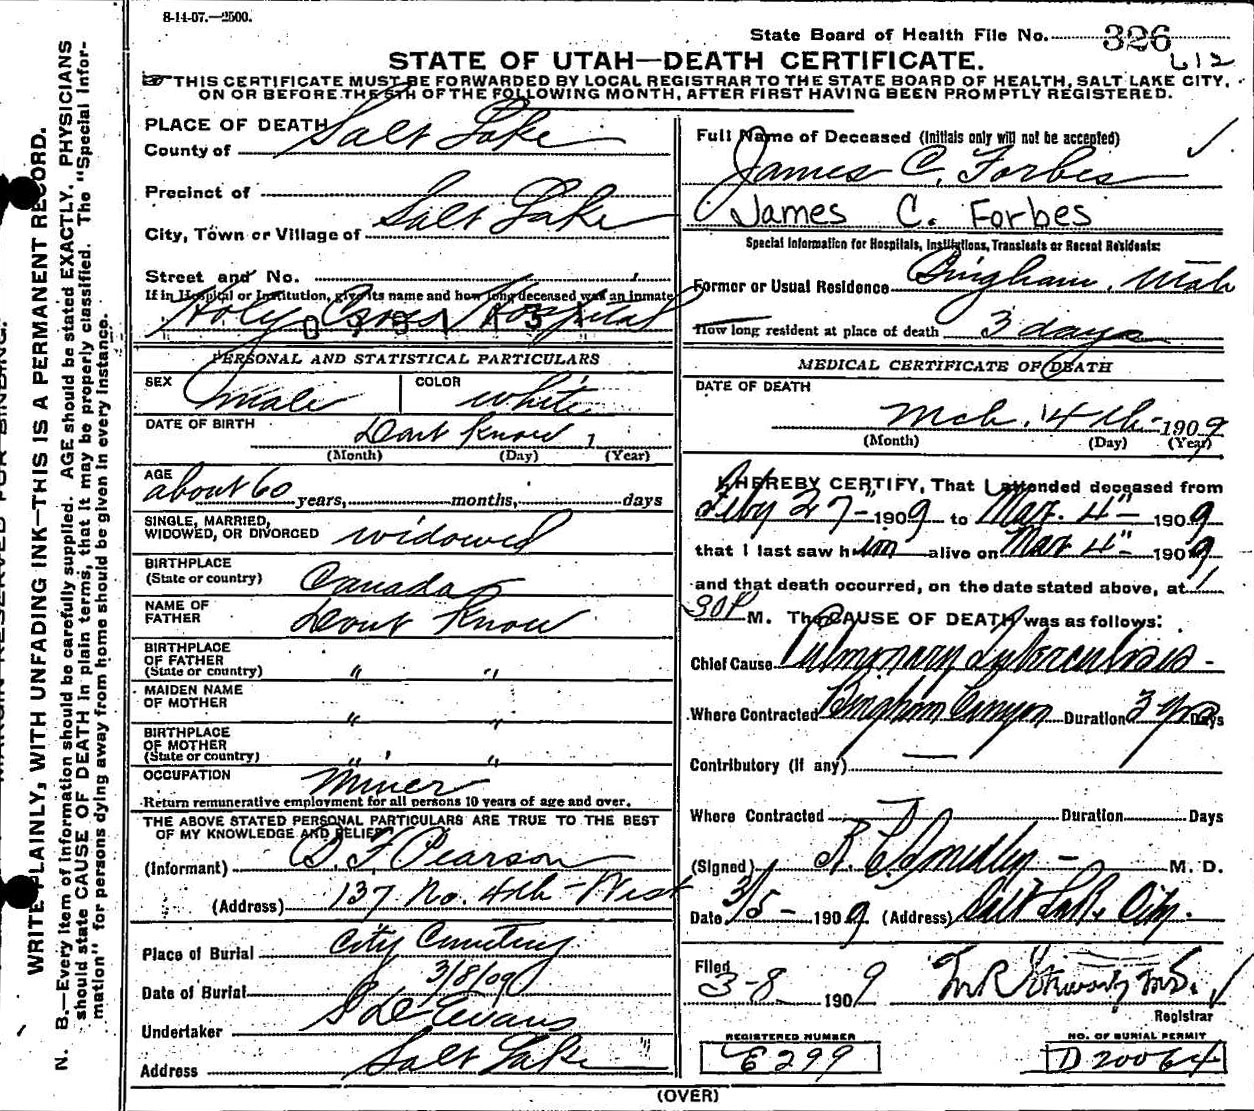 8-14-07.—2500.
State Board of Health File No. 326
612
STATE OF UTAH—DEATH CERTIFICATE.
☞ THIS CERTIFICATE MUST BE FORWARDED BY LOCAL REGISTRAR TO THE STATE BOARD OF HEALTH, SALT LAKE CITY,
ON OR BEFORE THE 5TH OF THE FOLLOWING MONTH, AFTER FIRST HAVING BEEN PROMPTLY REGISTERED.
WRITE PLAINLY, WITH UNFADING INK—THIS IS A PERMANENT RECORD.
N. B.—Every item of information should be carefully supplied. AGE should be stated EXACTLY. PHYSICIANS
should state CAUSE OF DEATH in plain terms, that it may be properly classified. The "Special Infor-
mation" for persons dying away from home should be given in every instance.
PLACE OF DEATH
County of Salt Lake
Precinct of
City, Town or Village of Salt Lake
Street and No.
If in Hospital or Institution, give its name and how long deceased was an inmate
Holy Cross Hospital
PERSONAL AND STATISTICAL PARTICULARS
SEX male COLOR white
DATE OF BIRTH Dont Know 1
(Month) (Day) (Year)
AGE
about 60 years, months, days
SINGLE, MARRIED,
WIDOWED, OR DIVORCED widowed
BIRTHPLACE
(State or country) Canada
NAME OF
FATHER Dont Know
BIRTHPLACE
OF FATHER
(State or country) " "
MAIDEN NAME
OF MOTHER " "
BIRTHPLACE
OF MOTHER
(State or country) " "
OCCUPATION Miner
Return remunerative employment for all persons 10 years of age and over.
THE ABOVE STATED PERSONAL PARTICULARS ARE TRUE TO THE BEST
OF MY KNOWLEDGE AND BELIEF
(Informant) D. F. Pearson
(Address) 137 No. 4th West
Place of Burial City Cemetery
Date of Burial 3/8/09
Undertaker S D Evans
Address Salt Lake
Full Name of Deceased (Initials only will not be accepted)
James C. Forbes
James C. Forbes
Special Information for Hospitals, Institutions, Transients or Recent Residents:
Former or Usual Residence Bingham, Utah
How long resident at place of death 3 days
MEDICAL CERTIFICATE OF DEATH
DATE OF DEATH
Mch. 4th 1909
(Month) (Day) (Year)
I HEREBY CERTIFY, That I attended deceased from
Feby 27" 1909 to Mar. 4" 1909
that I last saw him alive on Mar 4" 1909
and that death occurred, on the date stated above, at 1
30 P M. The CAUSE OF DEATH was as follows:
Chief Cause Pulmonary Tuberculosis
Where Contracted Bingham Canyon Duration 3 yrs Days
Contributory (if any) —
Where Contracted Duration Days
(Signed) M. D.
Date 3/5 — 1909 (Address) Salt Lake City.
Filed
3-8 1909
Registrar
REGISTERED NUMBER
E 299
NO. OF BURIAL PERMIT
D 20064
(OVER)